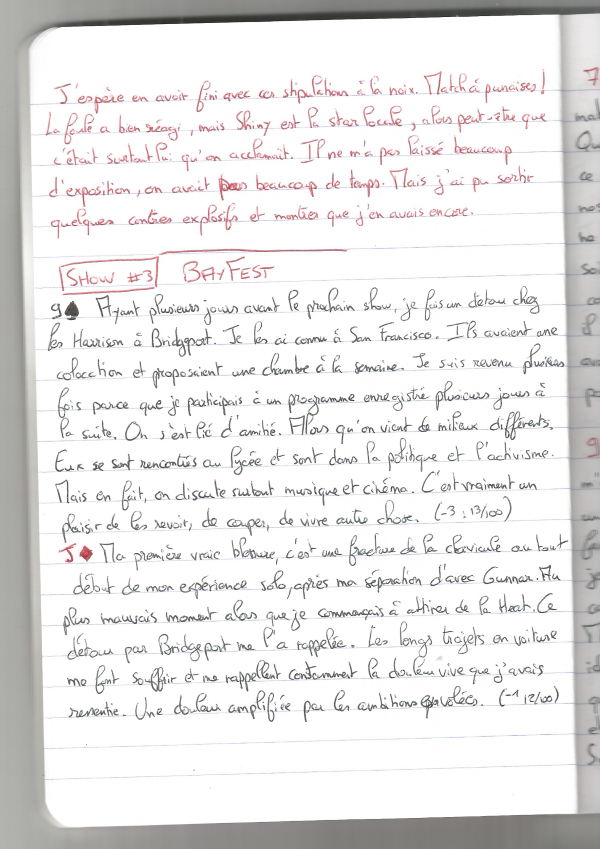 J'espère en avoir fini avec ces stipulations à la noix. Match à punaises !
La foule a bien réagi, mais Shiny est la star locale, alors peut-être que
c'était surtout lui qu'on acclamait. Il ne m'a pas laissé beaucoup
d'exposition, on avait pas beaucoup de temps. Mais j'ai pu sortir
quelques contres explosifs et montrer que j'en avais encore.
SHOW #3 BAYFEST
9♠ Ayant plusieurs jours avant le prochain show, je fais un détour chez
les Harrison à Bridgeport. Je les ai connu à San Francisco. Ils avaient une
colocation et proposaient une chambre à la semaine. Je suis revenu plusieurs
fois parce que je participais à un programme enregistré plusieurs jours à
la suite. On s'est lié d'amitié. Alors qu'on vient de milieux différents.
Eux se sont rencontrés au lycée et sont dans la politique et l'activisme.
Mais en fait, on discute surtout musique et cinéma. C'est vraiment un
plaisir de les revoir, de couper, de vivre autre chose. (-3 : 13/100)
J♦ Ma première vraie blessure, c'est une fracture de la clavicule au tout
début de mon expérience solo, après ma séparation d'avec Gunnar. Au
plus mauvais moment alors que je commençais à attirer de la Heat. Ce
détour par Bridgeport me l'a rappelée. Les longs trajets en voiture
me font souffrir et me rappellent constamment la douleur vive que j'avais
ressentie. Une douleur amplifiée par les ambitions envolées. (-1 12/100)
7
mal
Qu
ce
nos
he
Soi
co
if
9
m'